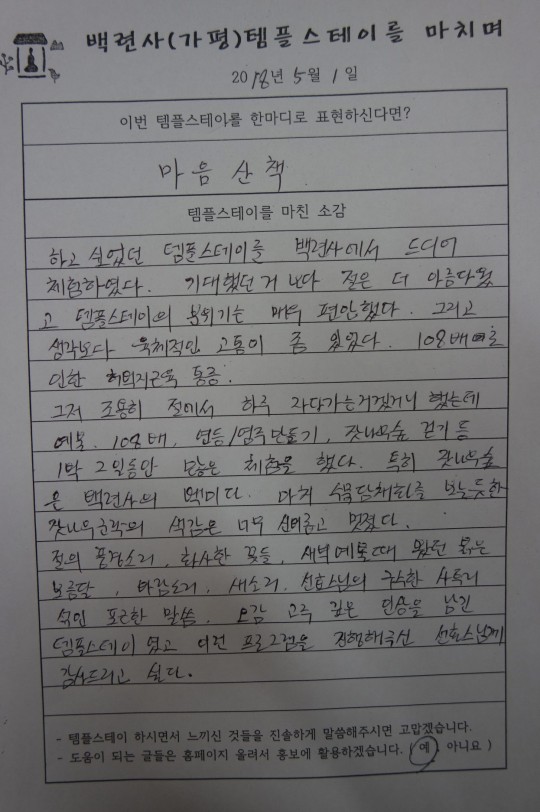 백련사(가평)템플스테이를 마치며
2018년 5월 1일
이번 템플스테이를 한마디로 표현하신다면?
마음 산책
템플스테이를 마친 소감
하고 싶었던 템플스테이를 백련사에서 드디어
체험하였다. 기대했던거 보다 절은 더 아름다웠
고 템플스테이의 분위기는 매우 편안했다. 그리고
생각보다 육체적인 고통이 좀 있었다. 108배를
인한 허벅지근육 통증.
그저 조용히 절에서 하루 자다가는거겠거니 했는데
예불. 108배, 연등/염주만들기, 잣나무숲 걷기 등
1박 2일동안 많은 체험을 했다. 특히 잣나무숲
은 백련사의 백미다. 마치 수묵담채화를 보는듯한
잣나무군락의 색감은 너무 신비롭고 멋졌다.
절의 풍경소리, 화사한 꽃들, 새벽예불때 봤던 붉은
보름달, 바람소리, 새소리. 선효스님의 구수한 사투리
섞인 포근한 말씀. 오감 고루 깊은 인상을 남긴
템플스테이였고 이런 프로그램을 진행해주신 선효스님께
감사드리고 싶다.
- 템플스테이 하시면서 느끼신 것들을 진솔하게 말씀해주시면 고맙겠습니다.
- 도움이 되는 글들은 홈페이지 올려서 홍보에 활용하겠습니다. ( 예 아니요 )